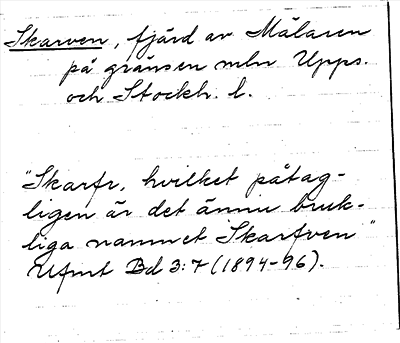 Skarven, fjärd av Mälaren
på gränsen mln Upps.
och Stockh. l.
"Skarfr, hvilket påtag-
ligen är det ännu bruk-
liga namnet Skarfven"
Ufmt Bd 3:7 (1894-96).